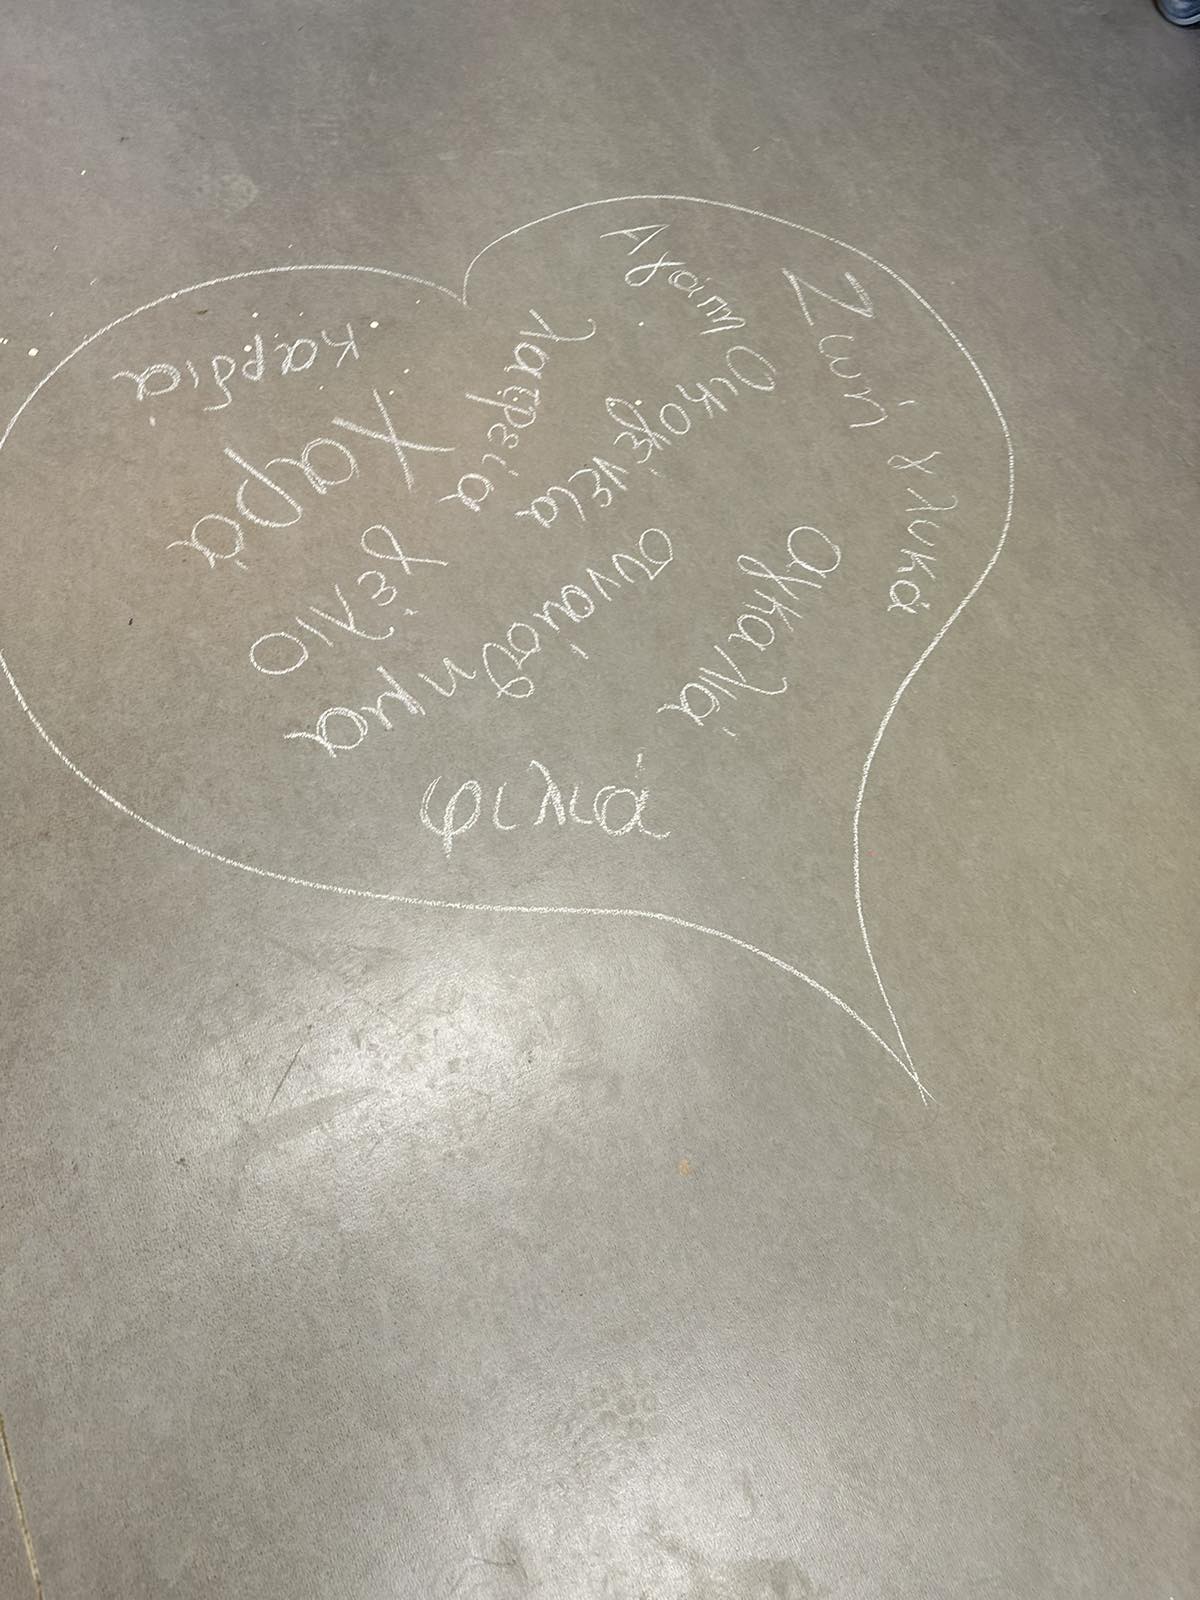 Αγάπη
Ζωή γλυκά
Οικογένεια
λατρεία
καρδιά
Χαρά
γέλιο
συναίσθημα
αγκαλιά
φιλιά